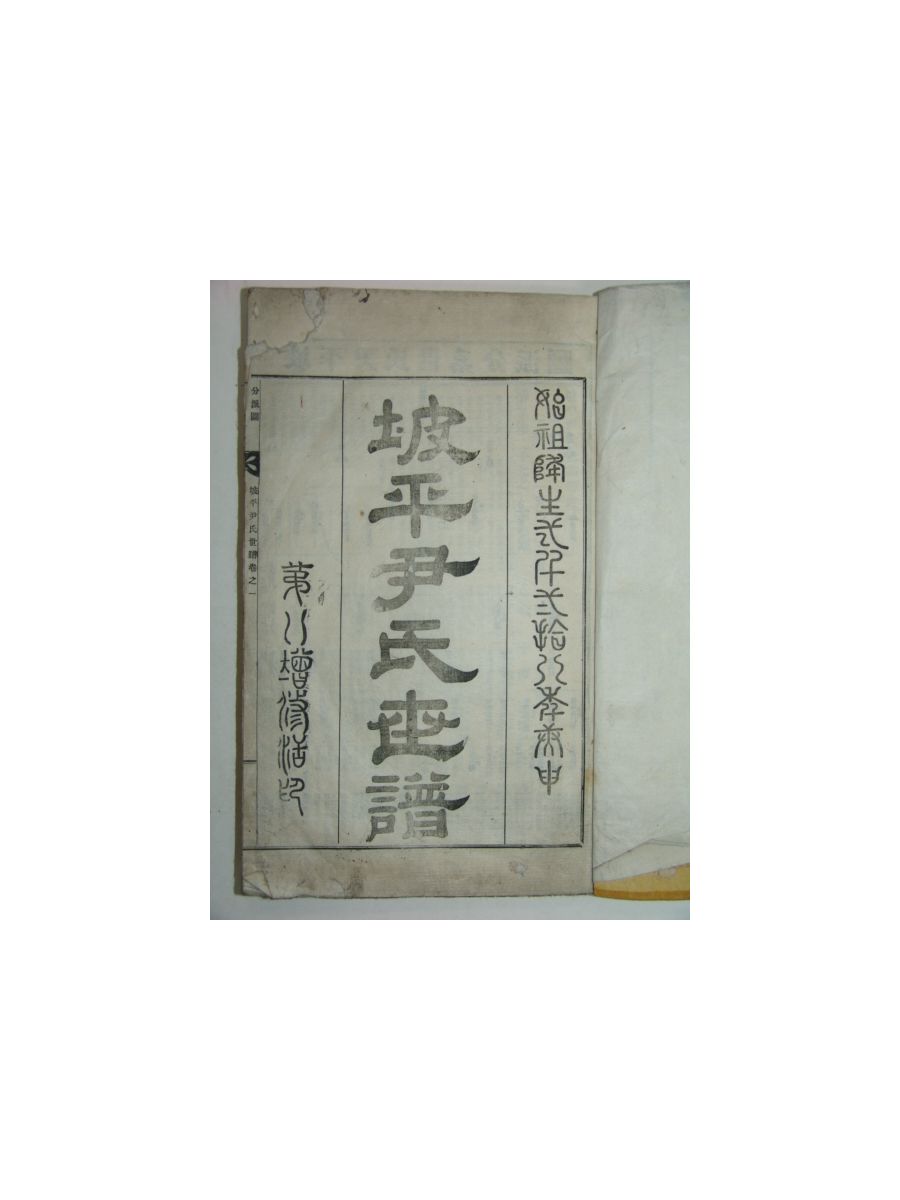 始祖降生弌仟弍拾八季庚申
坡平尹氏世譜
第八增修活印
分派圖
坡平尹氏世譜卷之一